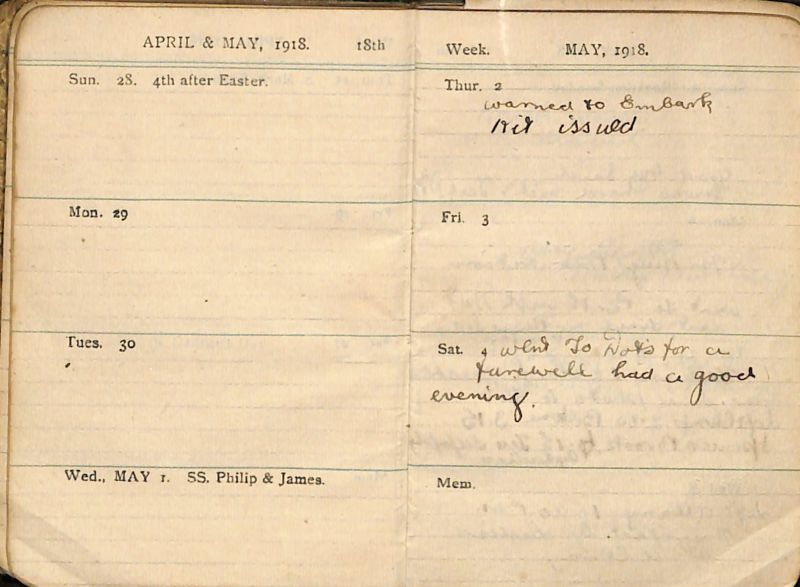 APRIL & MAY, 1918. 18th
Sun. 28. 4th after Easter.
Mon. 29
Tues. 30
Wed., MAY 1. SS. Philip & James.
Week. MAY, 1918.
Thur. 2
warned to Embark
Kit issued
Fri. 3
Sat. 4 went To Not's for a
farewell had a good
evening.
Mem.